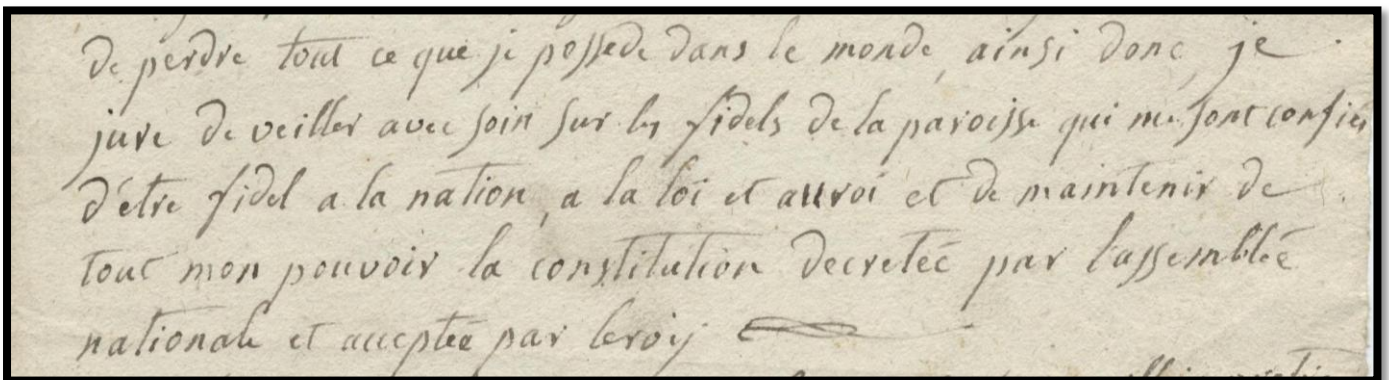 de perdre tout ce que je possede dans le monde, ainsi donc, je
jure de veiller avec soin sur les fidels de la paroisse qui me sont confiés
d'étre fidel a la nation, a la loi et au roi et de maintenir de
tout mon pouvoir la constitution decretée par l'assemblée
nationale et acceptée par le roy